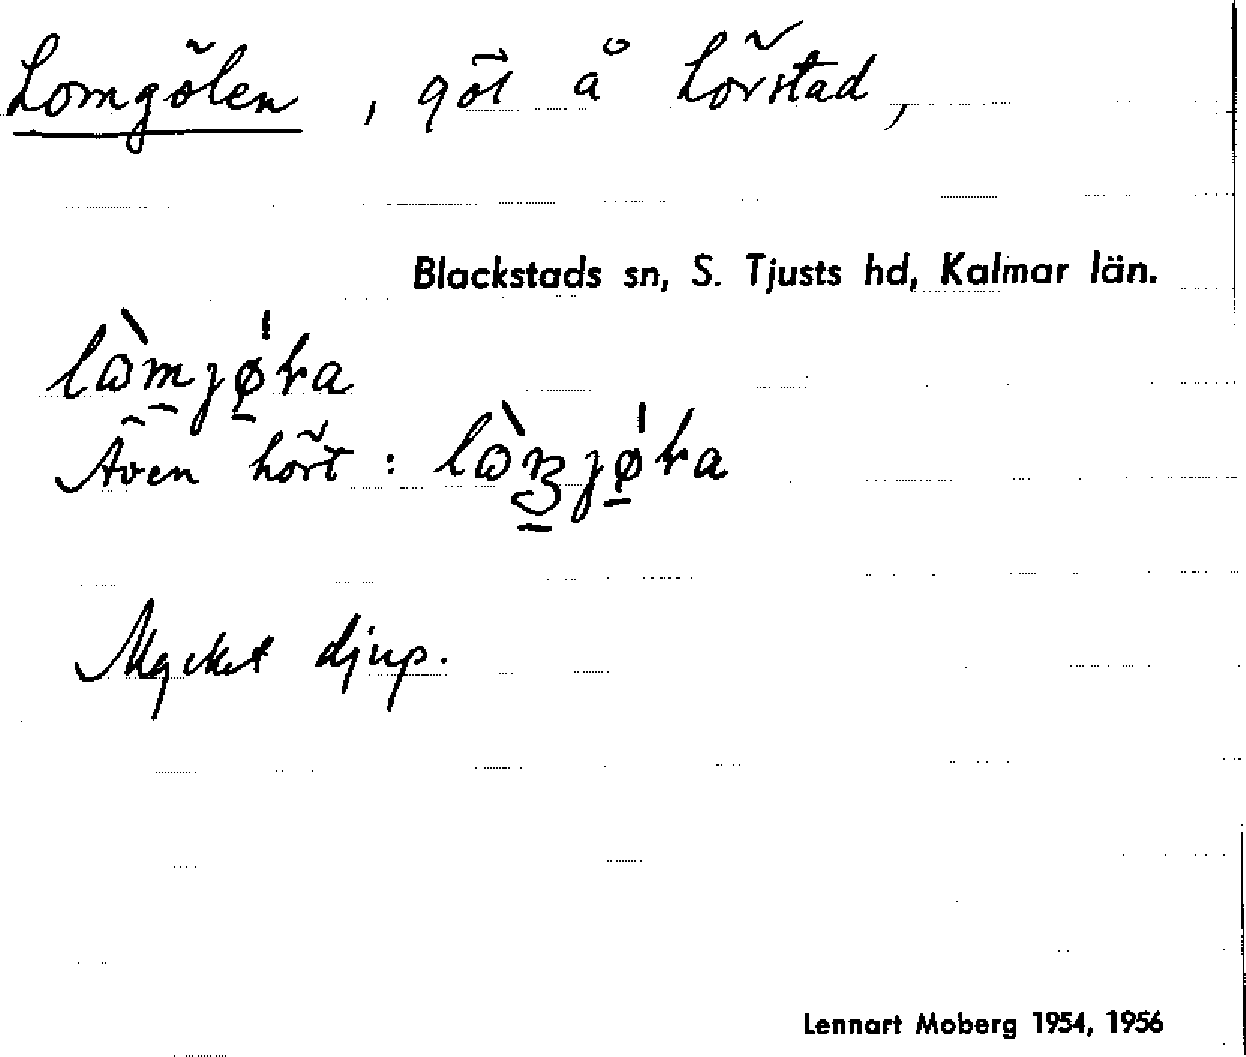 Lomgölen, göl å Lörstad,
Blackstads sn, S. Tjusts hd, Kalmar län.
Även hört:
Mycket djup.
Lennart Moberg 1954, 1956